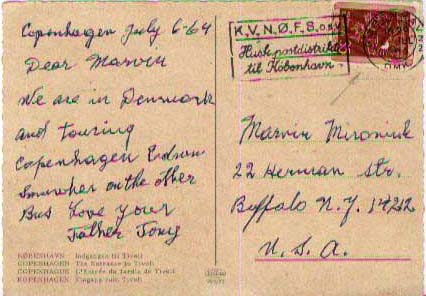 Copenhagen July 6-64
Dear Marvin
We are in Denmark
and touring
Copenhagen
Somewher on the other
Bus Love your
Father Tony
KØBENHAVN Indgangen til Tivoli
COPENHAGEN The Entrance to Tivoli
COPENHAGUE L'Entrée du Jardin de Tivoli
KOPENHAGEN Eingang zum Tivoli
K.V.N.Ø.F.S.
Husk postdistrikt
til København
Marvin Mironiuk
22 Herman Str.
Buffalo N.Y. 14212
U.S.A.